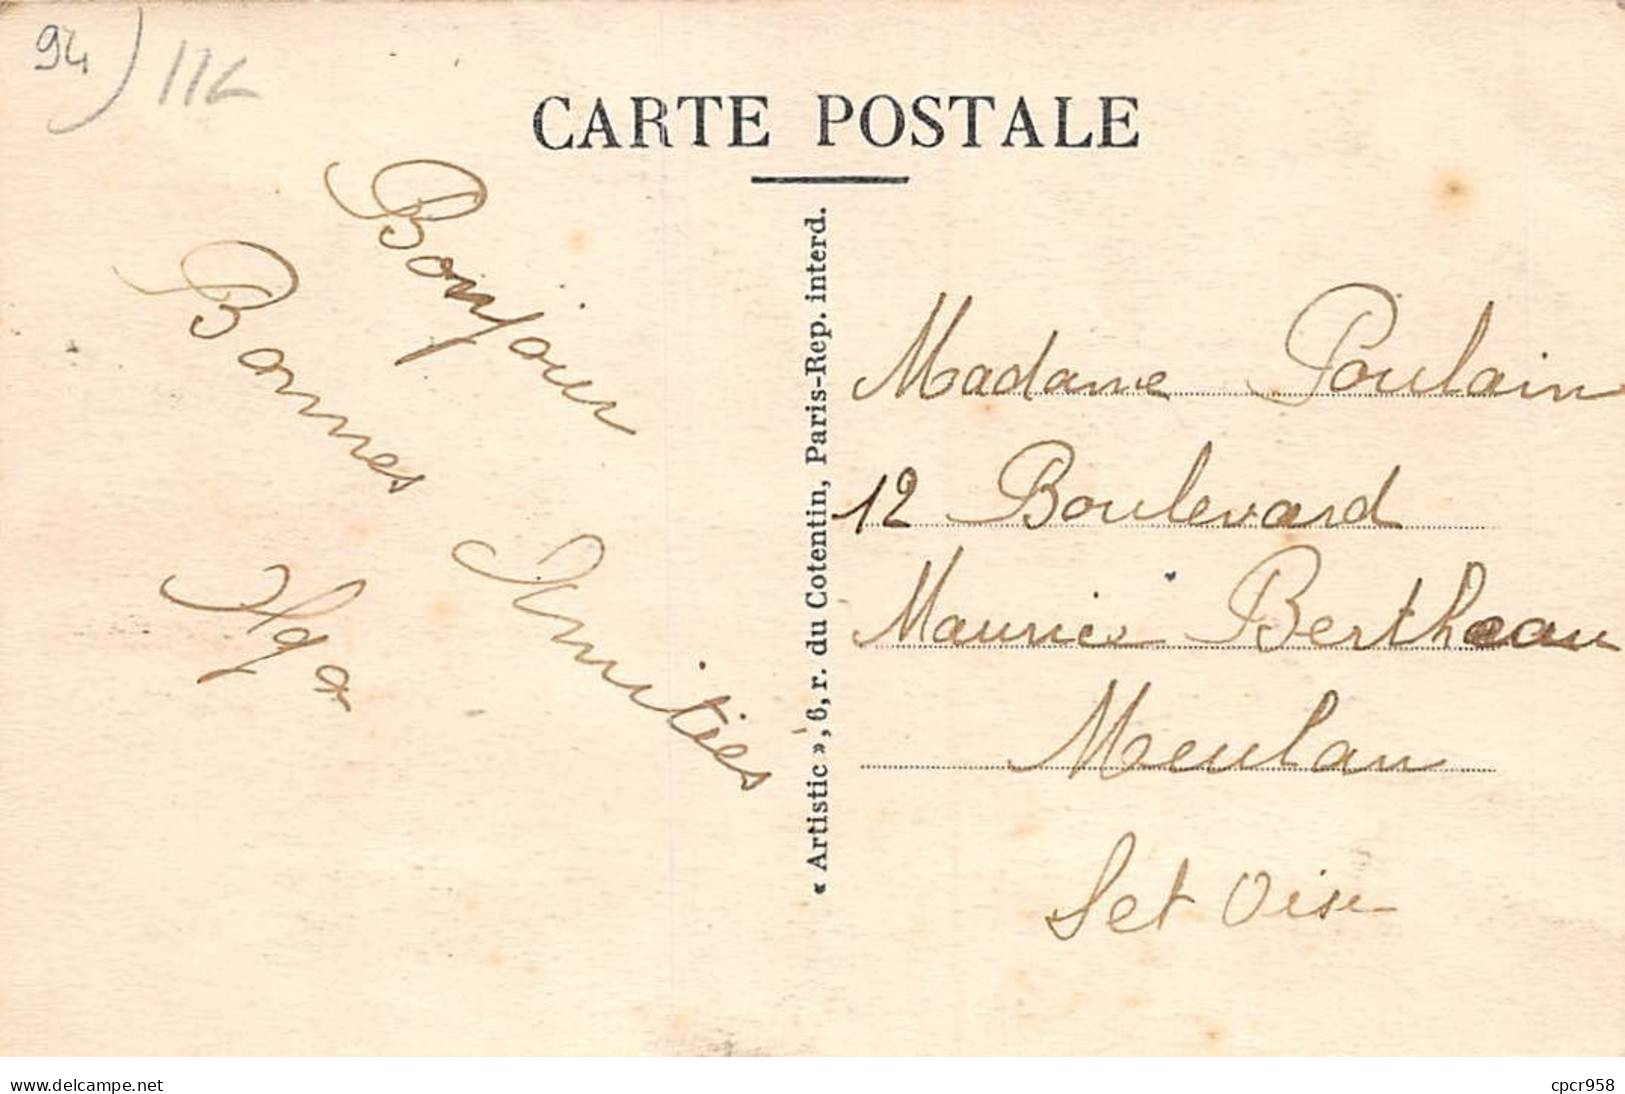 94
CARTE POSTALE
Bonjour
Bonnes Amitiés
« Artistic », 6, r. du Cotentin, Paris-Rep. interd.
Madame Poulain
12 Boulevard
Maurice Bertheau
Meulan
Set Oise
www.delcampe.net
cpcr958